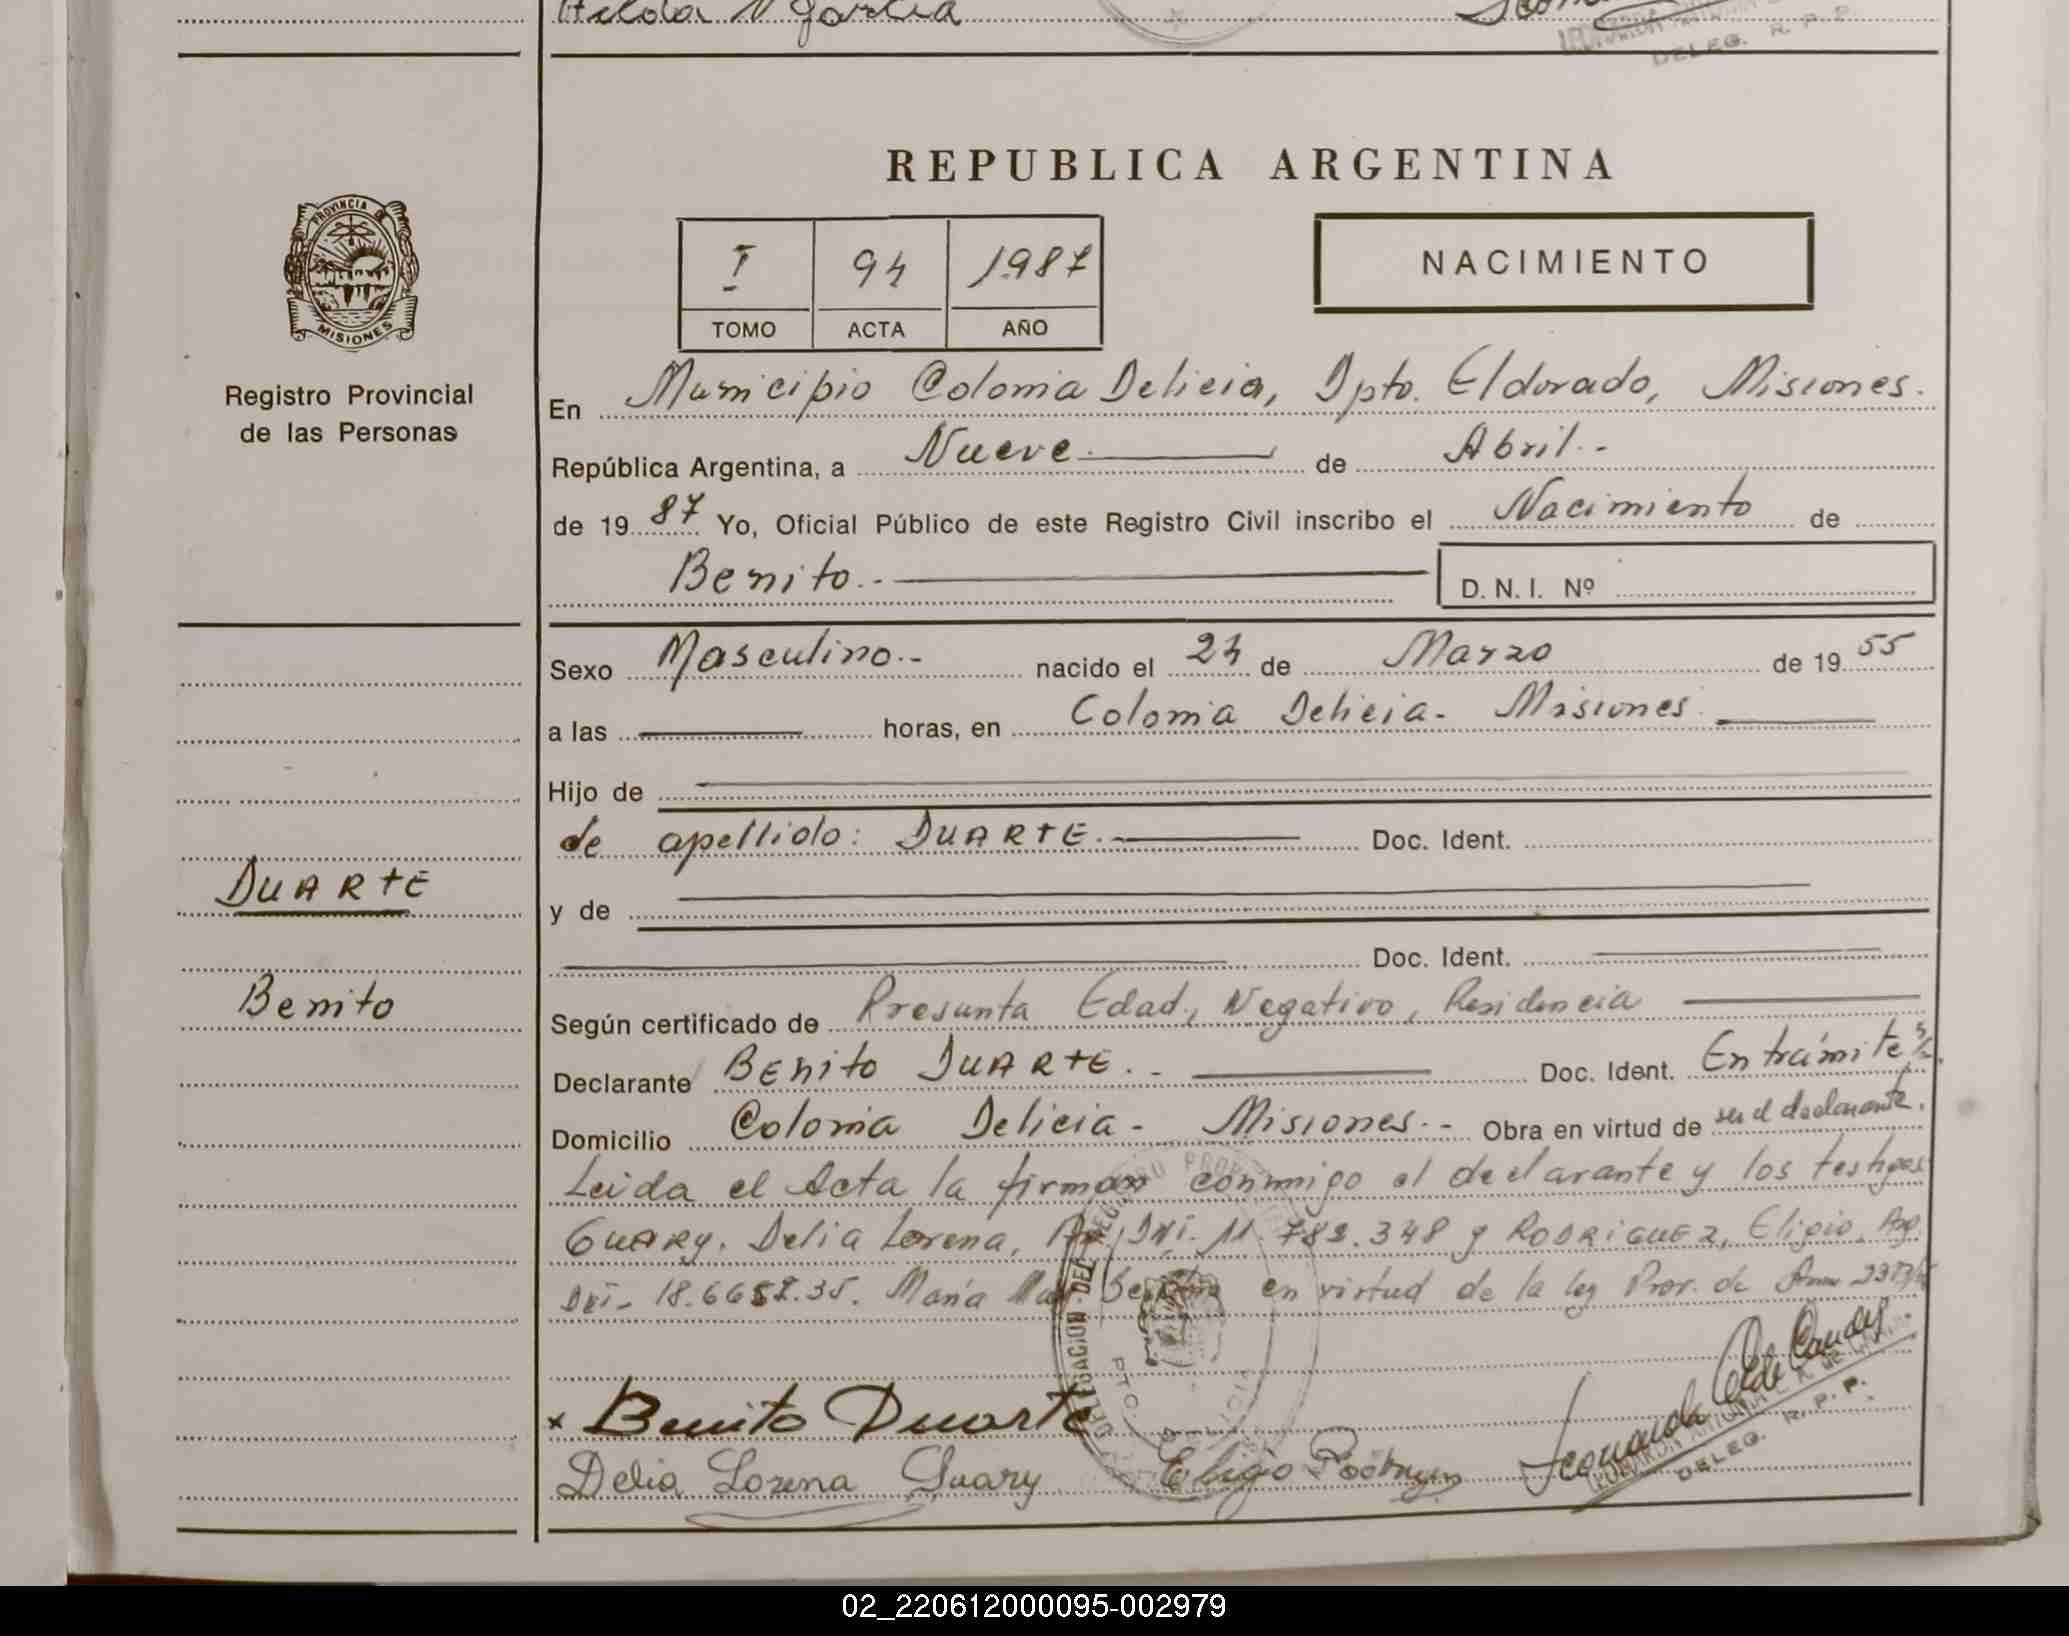 Hilda N Garcia
DELEG. R. P. P.
PROVINCIA DE
MISIONES
Registro Provincial
de las Personas
REPUBLICA ARGENTINA
I 94 1987
TOMO ACTA AÑO
NACIMIENTO
En Municipio Colonia Delicia, Dpto. Eldorado, Misiones.
República Argentina, a Nueve.— de Abril.-
de 1987 Yo, Oficial Público de este Registro Civil inscribo el Nacimiento de
Benito.-— D. N. I. Nº
Sexo Masculino.- nacido el 24 de Marzo de 1955
a las — horas, en Colonia Delicia- Misiones.—
Hijo de —
de apellido: DUARTE.— Doc. Ident.
DUARTE
y de —
— Doc. Ident. —
Benito
Según certificado de Presunta Edad, Negativo, Residencia —
Declarante BENITO DUARTE.-— Doc. Ident. En trámite
Domicilio Colonia Delicia- Misiones.- Obra en virtud de ser el declarante.
Leida el Acta la firman conmigo el declarante y los testigos
GUARY, Delia Lorena, DNI. 11.782.348 y RODRIGUEZ, Eligio,
DNI- 18.6652.35. María en virtud de la ley Prov. de
x Benito Duarte
Delia Lorena Guary Eligio Rodriguez
DELEG. R. P. P.
02_220612000095-002979